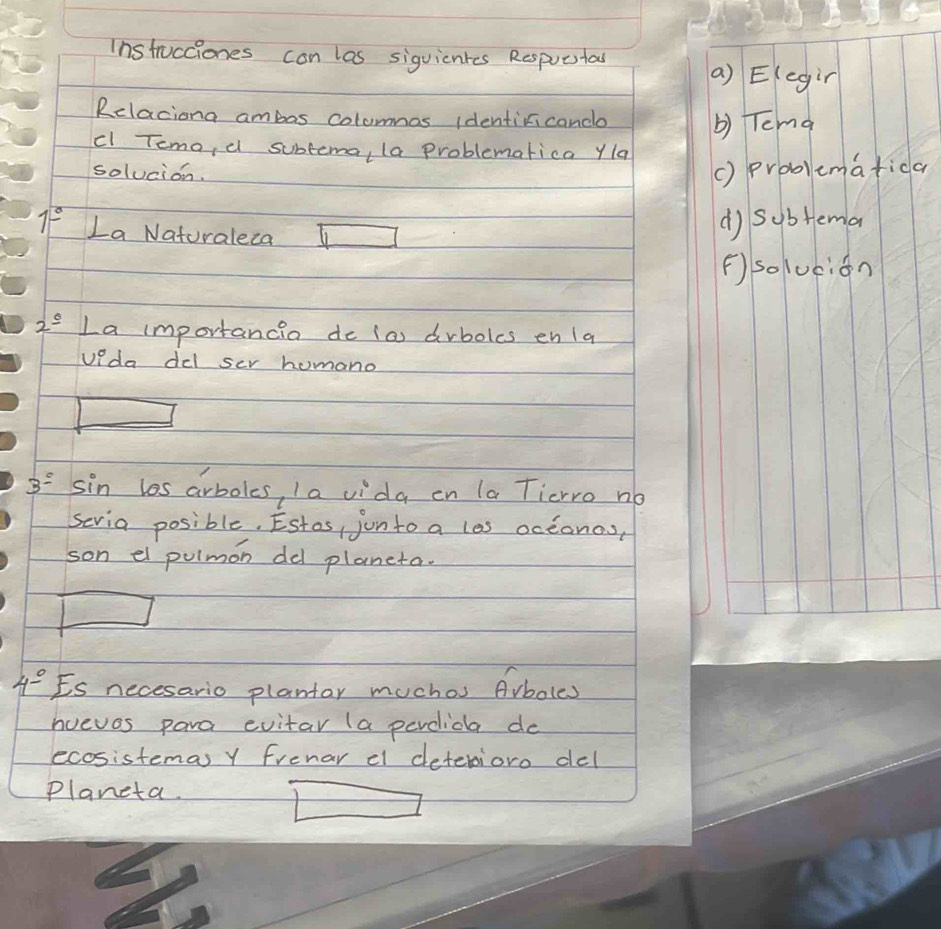 Instrucciones con las siguientes Respuestas
Relaciona ambas columnas identificando
el Tema, el subtema, la Problematica y la
solución.
1º La Naturaleza
2º La importancia de las árboles en la
vida del ser humano
3º sin los árboles, la vida en la Tierra no
seria posible. Estos, junto a los océanos,
son el pulmón del planeta.
4º Es necesario plantar muchos Árboles
nuevos para evitar la perdida de
ecosistemas y frenar el deterioro del
Planeta.
a) Elegir
b) Tema
c) problemática
d) subtema
F) solución